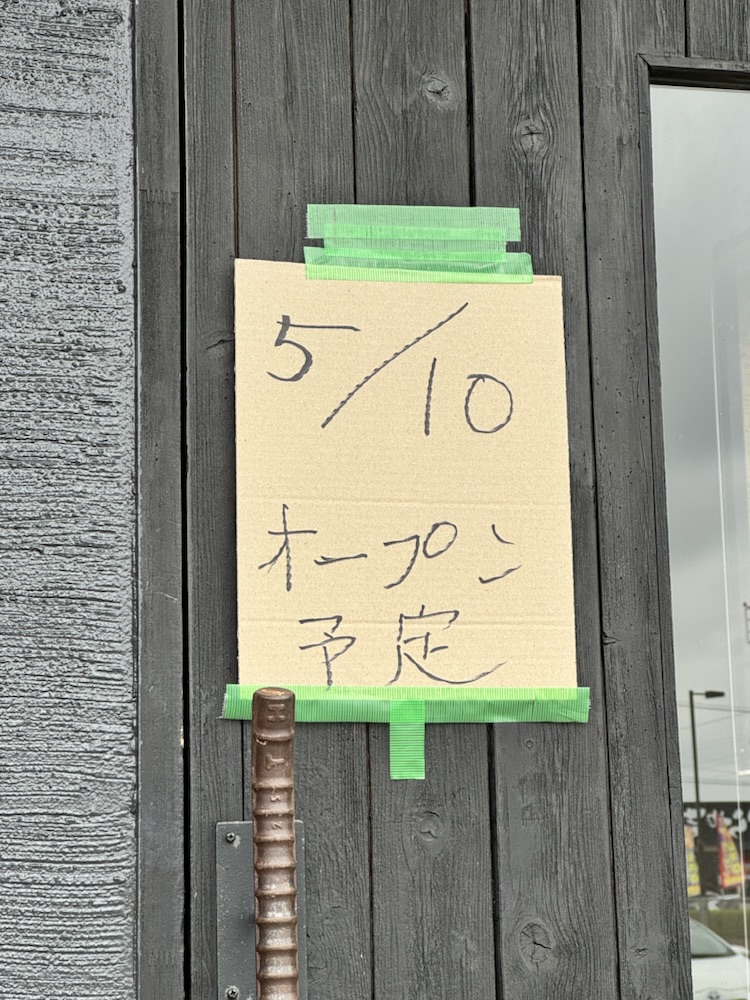 5/10
オープン
予定